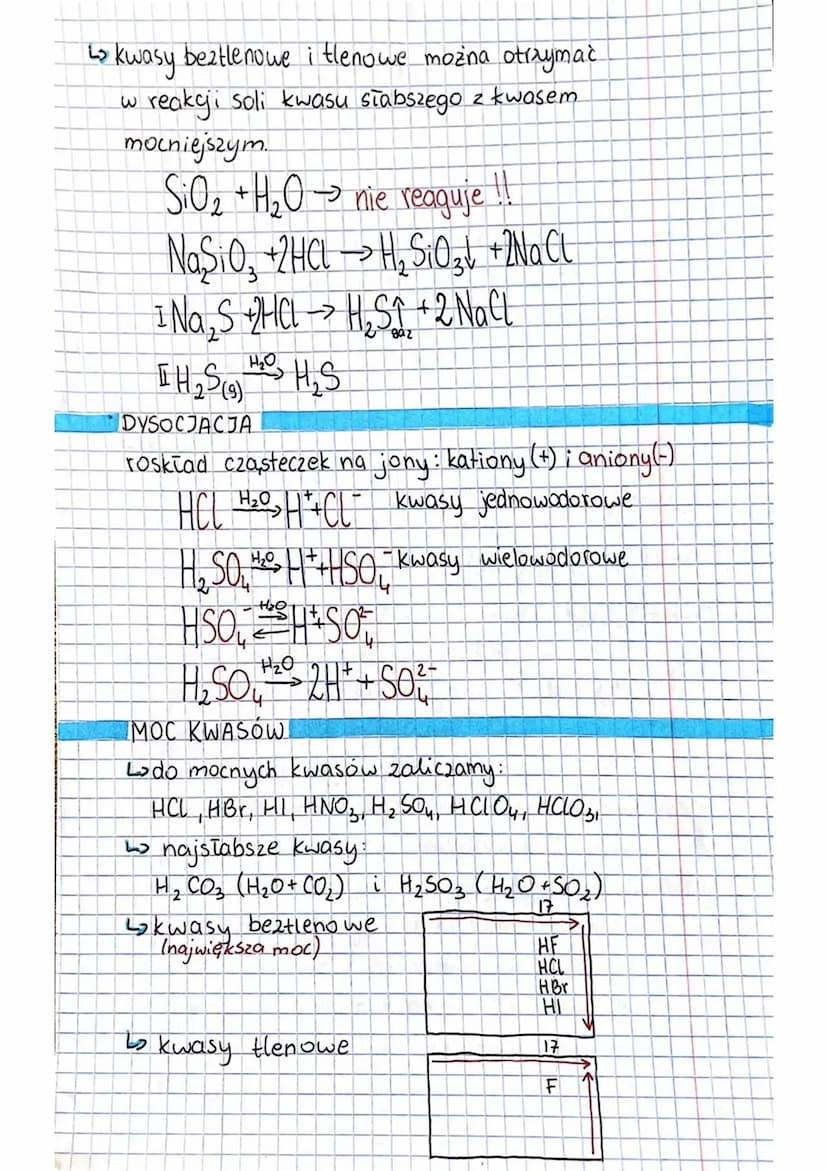 ↳ kwasy beztlenowe i tlenowe można otrzymać
w reakcji soli kwasu słabszego z kwasem
mocniejszym.
SiO₂ + H₂O → nie reaguje !!
Na₂SiO₃ + 2HCl → H₂SiO₃↓ + 2NaCl
I Na₂S + 2HCl → H₂S↑ + 2NaCl
gaz
II H₂S(g) →(H₂O) H₂S
DYSOCJACJA
roskład cząsteczek na jony: kationy (+) i aniony (-)
HCl →(H₂O) H⁺ + Cl⁻ kwasy jednowodorowe
H₂SO₄ →(H₂O) H⁺ + HSO₄⁻ kwasy wielowodorowe
HSO₄⁻ ⇄(H₂O) H⁺ + SO₄²⁻
H₂SO₄ →(H₂O) 2H⁺ + SO₄²⁻
MOC KWASÓW
↳ do mocnych kwasów zaliczamy:
HCl, HBr, HI, HNO₃, H₂SO₄, HClO₄, HClO₃,
↳ najsłabsze kwasy:
H₂CO₃ (H₂O + CO₂) i H₂SO₃ (H₂O + SO₂)
↳ kwasy beztlenowe
(największa moc)
17
HF
HCl
HBr
HI
↳ kwasy tlenowe
17
F